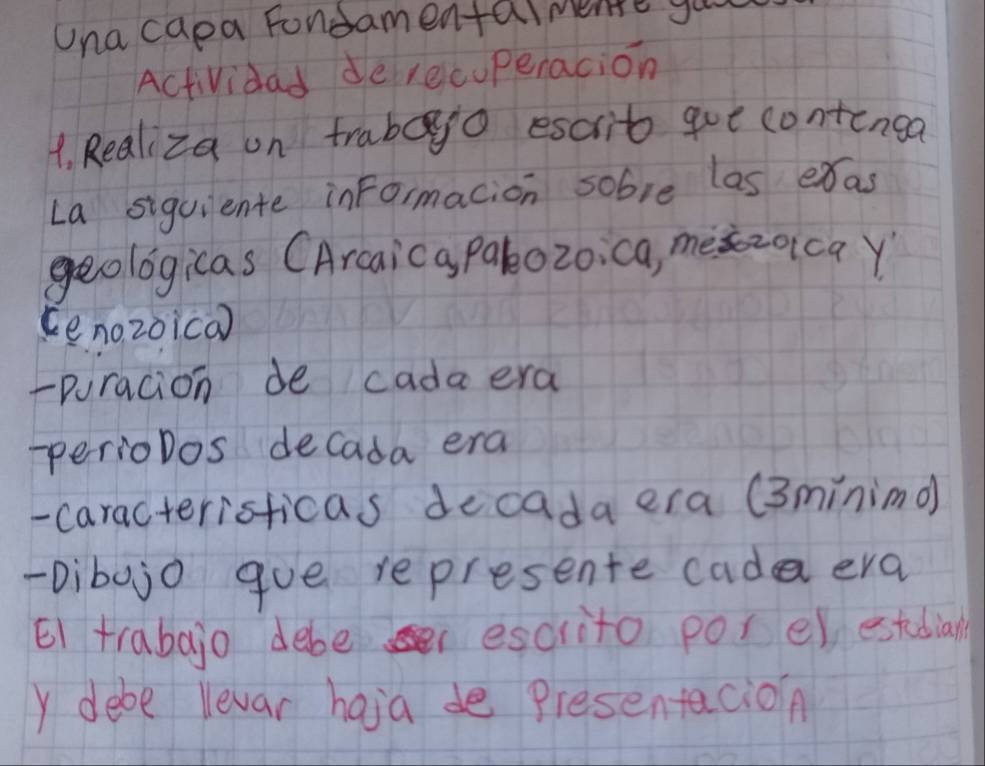 Una capa Fondamentalmente
Actividad de recuperación
1. Realiza un trabajo escrito que contenga
La siguiente inFormación sobre las eras
geológicas (Arcaica, Paleozoica, mesozoica y
Cenozoica)
-Duración de cada era
-perioDos de cada era
-caracteristicas de cada era (3 mínimo)
-Dibujo que represente cada era
El trabajo debe ser escrito por el estudiante
y debe llevar hoja de Presentación